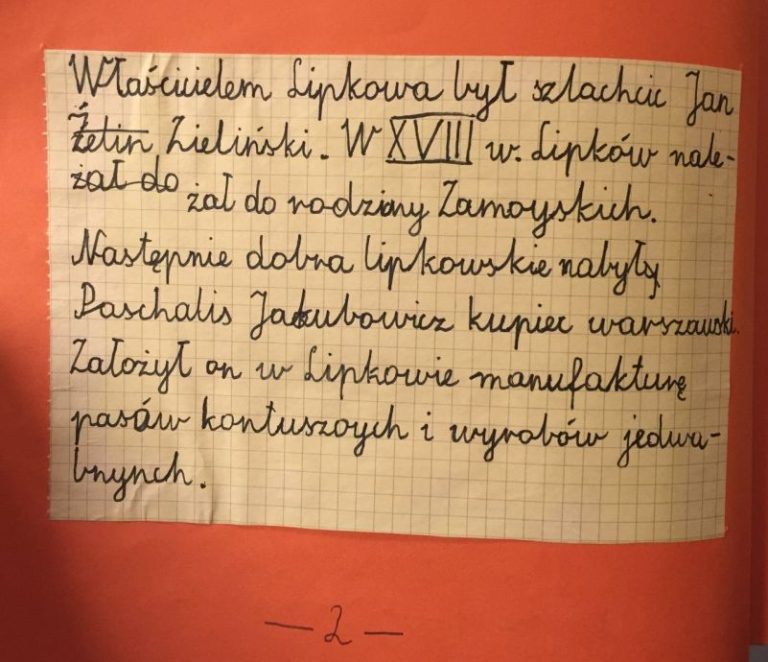 Właścicielem Lipkowa był szlachcic Jan
Żelin Zieliński. W XVIII w. Lipków nale-
żał do żał do rodziny Zamoyskich.
Następnie dobra lipkowskie nabył
Paschalis Jakubowicz kupiec warszawski.
Założył on w Lipkowie manufakturę
pasów kontuszoych i wyrobów jedwa-
bnynch.
— 2 —